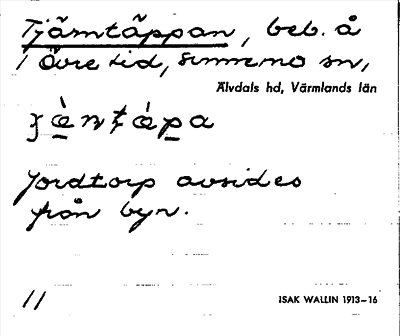 Tjämtäppan, beb. å
1 Övre Lid, Sunnemo sn,
Älvdals hd, Värmlands län
Jordtorp avsides
från byn.
11
ISAK WALLIN 1913–16